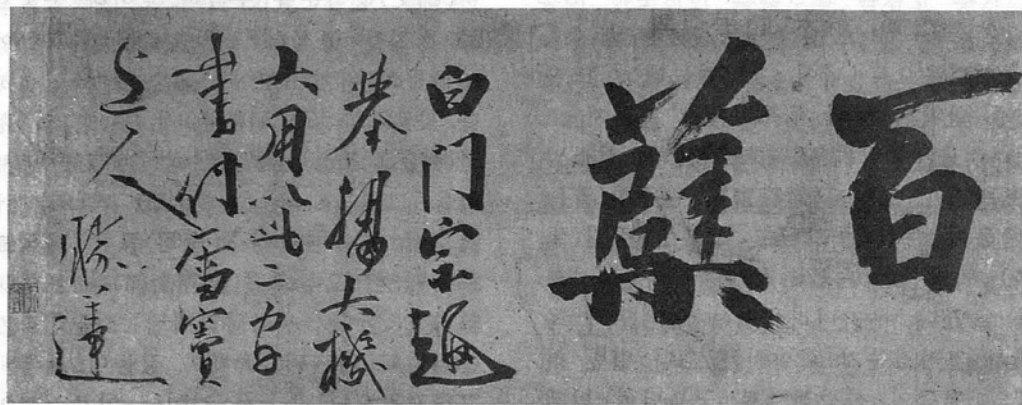 百蘗
白門宗趣
舉揚大機
大用以此二字
書付雪竇
上人